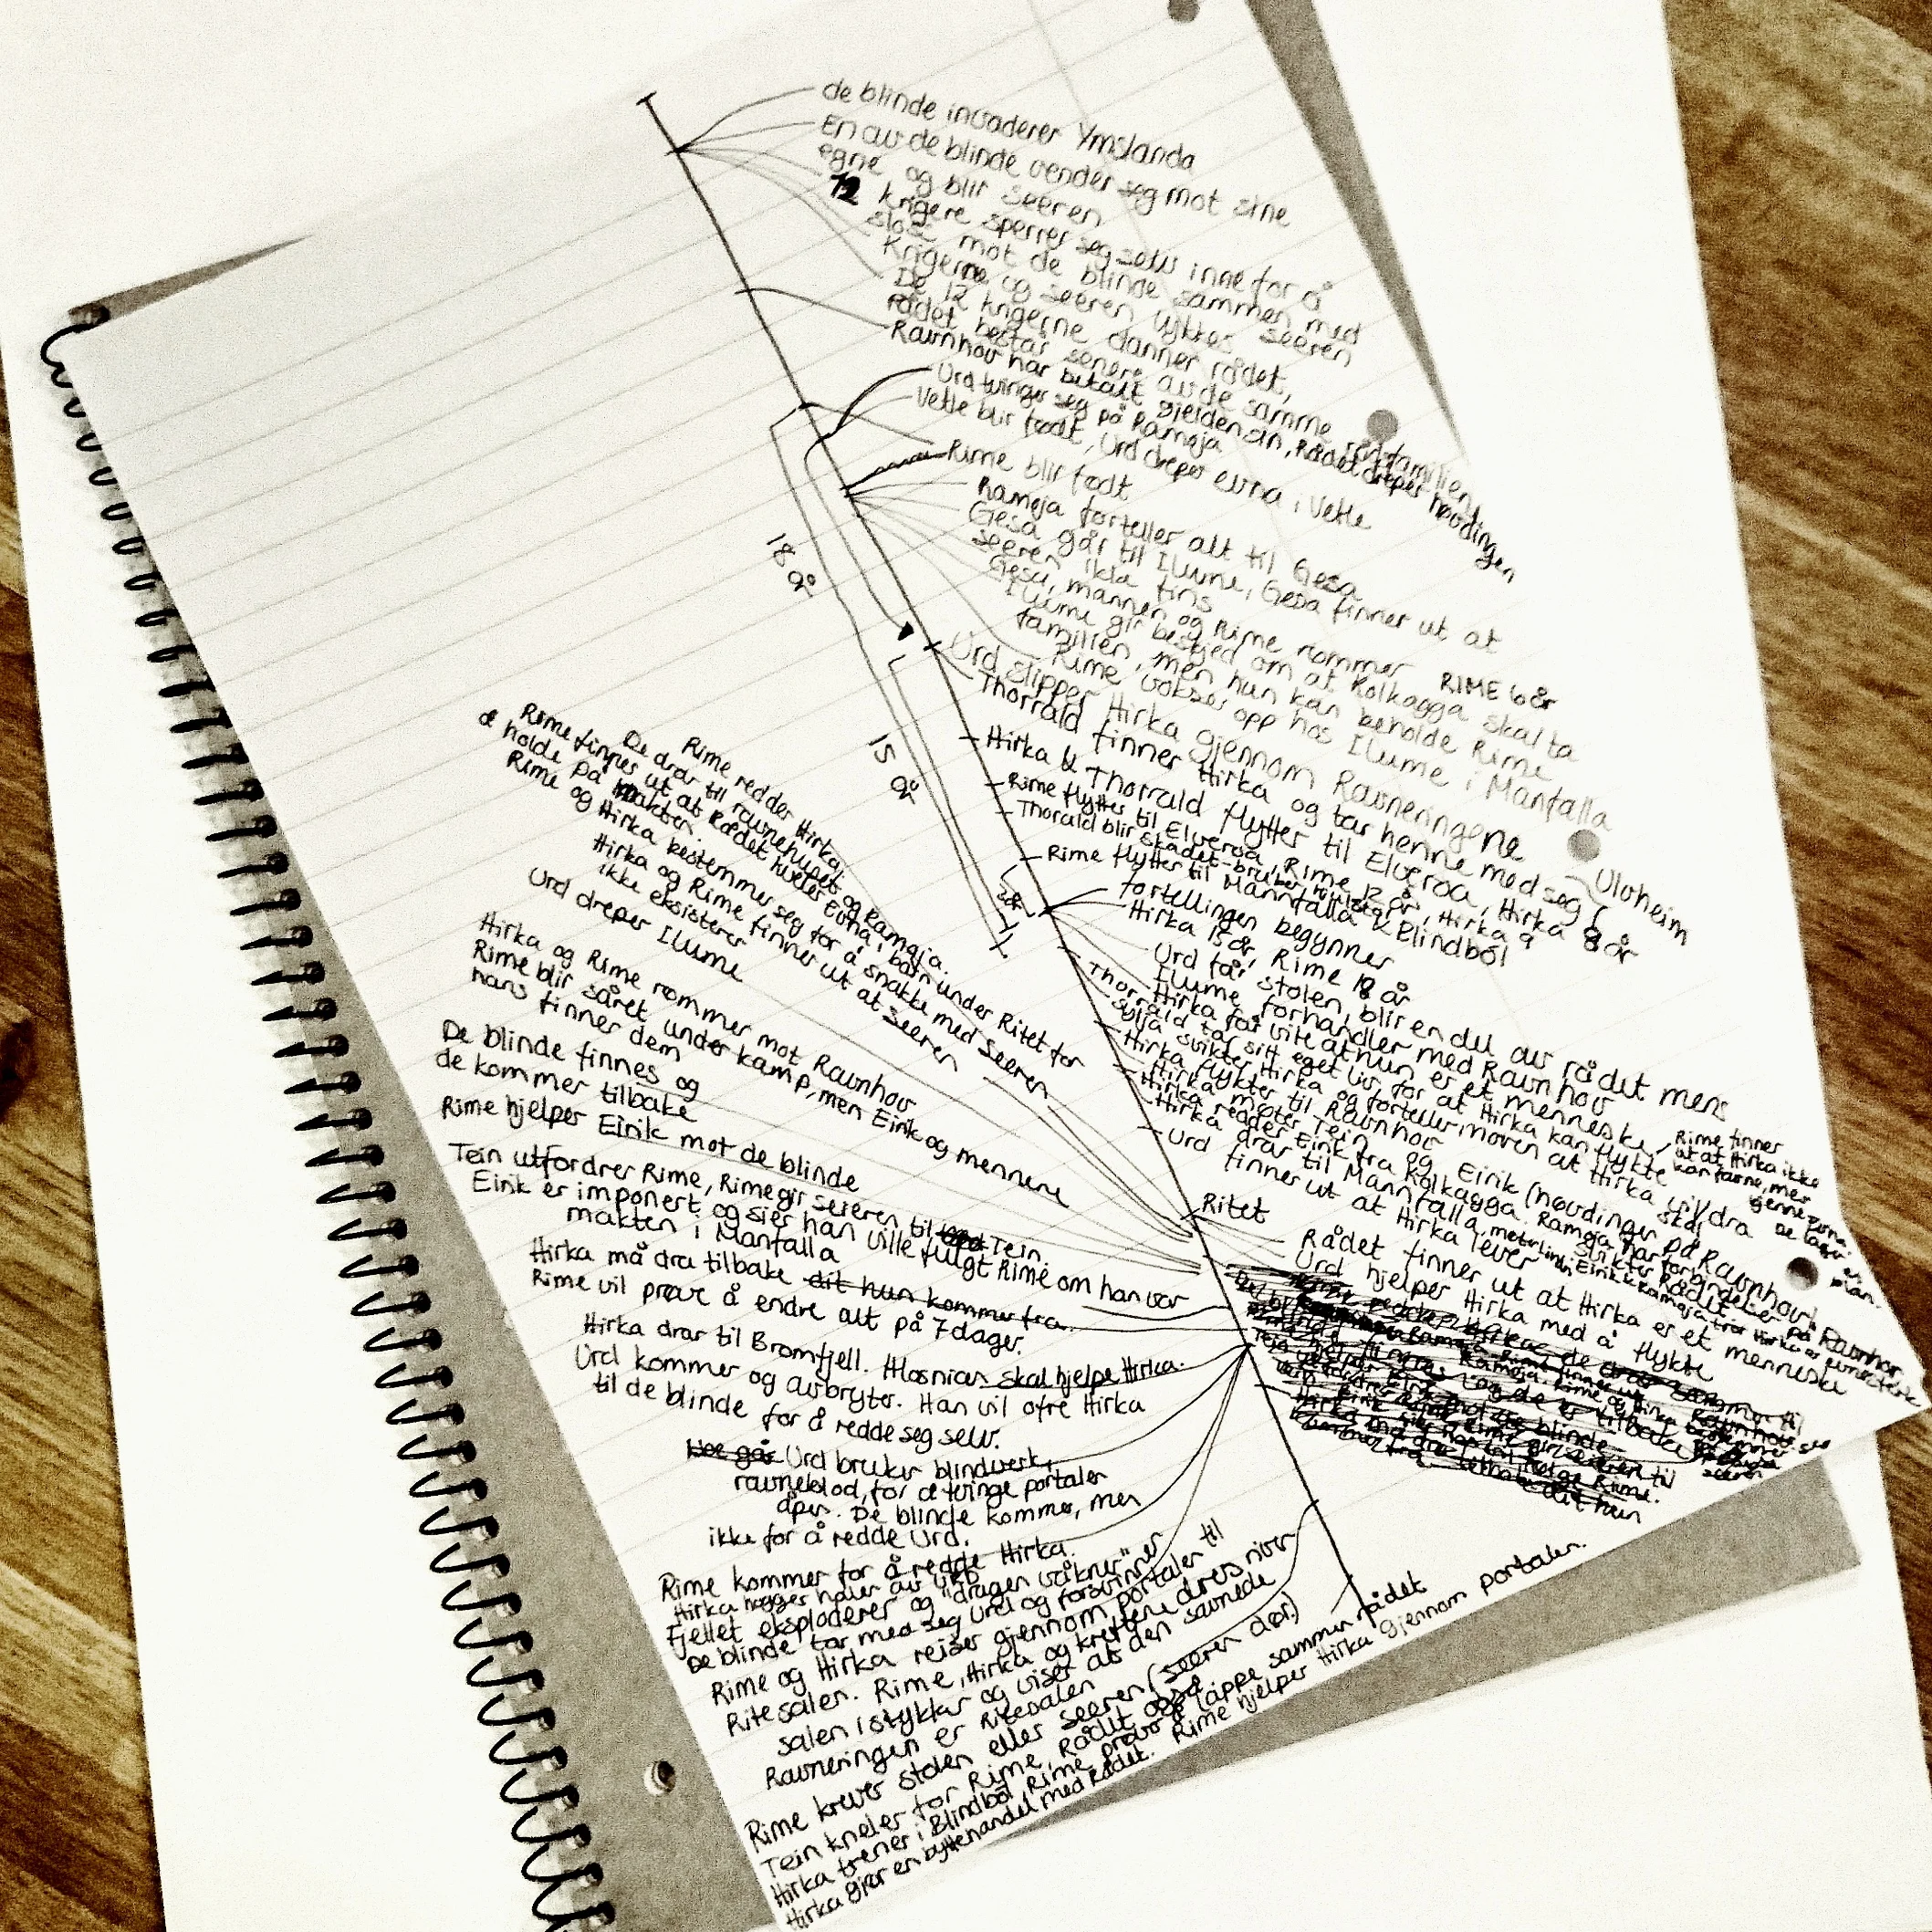 de blinde invaderer Ymslanda
En av de blinde vender seg mot sine
egne og blir Seeren
12 krigere sperrer seg selv inne for å
slåss mot de blinde sammen med
Krigerne og seeren lykkes seeren
De 12 krigerne danner rådet,
rådet består senere av de samme rådsfamiliene
Ravnhov har betalt gjelden sin, Rådet dreper høvdingen
Urd tvinger seg på Rameja
Vetle blir født, Urd dreper evna i Vetle
Rime blir født
Rameja forteller alt til Gesa
Gesa går til Ilume, Gesa finner ut at
seeren ikke fins
Gesa, mannen og Rime rømmer RIME 6 år
Ilume gir beskjed om at Kolkagga skal ta
familien, men hun kan beholde Rime
Rime vokser opp hos Ilume i Manfalla
Urd slipper Hirka gjennom Ravneringene
Thorrald finner Hirka og tar henne med seg
Ulvheim
Hirka & Thorrald flytter til Elveroa, Hirka 8 år
Rime flytter til Elveroa, Rime 12 år, Hirka 9 år
Thorald blir skadet
Rime flytter til Mannfalla & Blindból
18 år
15 år
fortellingen begynner
Hirka 15 år, Rime 18 år
Urd får stolen, blir en del av rådet mens
Ilume forhandler med Ravnhov
Hirka får vite at hun er et menneske,
Rime finner
ut at Hirka ikke
kan favne, mer
Thorrald tar sitt eget liv for at Hirka kan flykte
Sylja svikter Hirka og forteller moren at Hirka vil dra
Hirka flykter til Ravnhov
Hirka møter Tein og Eirik (høvdingen på Ravnhov)
Hirka redder Eirik fra Kolkagga. Rameja har forbindelser på Ravnhov,
Hirka drar til Mannfalla
Urd finner ut at Hirka lever
Ritet
Rådet finner ut at Hirka er et menneske
Urd hjelper Hirka med å flykte
Rime redder Hirka
De drar til ravnehuset og Ramaja.
Rime finnes ut at Rådet kveler Evna i barn under Ritet for
å holde på makten.
Rime og Hirka bestemmer seg for å snakke med Seeren
Hirka og Rime finner ut at Seeren
ikke eksisterer
Urd dreper Ilume
Hirka og Rime rømmer mot Ravnhov
Rime blir såret under kamp, men Eirik og mennene
hans finner dem
De blinde finnes og
de kommer tilbake
Rime hjelper Eirik mot de blinde
Tein utfordrer Rime, Rime gir seieren til Tein
Eirik er imponert og sier han ville fulgt Rime om han var
makten i Manfalla
Hirka må dra tilbake dit hun kommer fra.
Rime vil prøve å endre alt på 7 dager.
Hirka drar til Bromfjell. Hlosnian skal hjelpe Hirka.
Urd kommer og avbryter. Han vil ofre Hirka
til de blinde for å redde seg selv.
Urd bruker blindverk,
ravneblod, for å tvinge portaler
åpen. De blinde kommer, men
ikke for å redde Urd.
Rime kommer for å redde Hirka.
Hirka hogger halen av URD
Fjellet eksploderer og "dragen våkner"
De blinde tar med seg Urd og forsvinner
Rime og Hirka reiser gjennom portaler til
Ritesalen. Rime, Hirka og kreftene dres river
salen i stykker og viser at den savnede
Ravneringen er Ritesalen
Rime krever stolen eller seeren (seeren dør)
Tein kneler for Rime, Rådet også
Hirka trener i Blindból, Rime prøver å lappe sammen rådet
Hirka gjør en byttehandel med Rådet. Rime hjelper Hirka gjennom portalen.